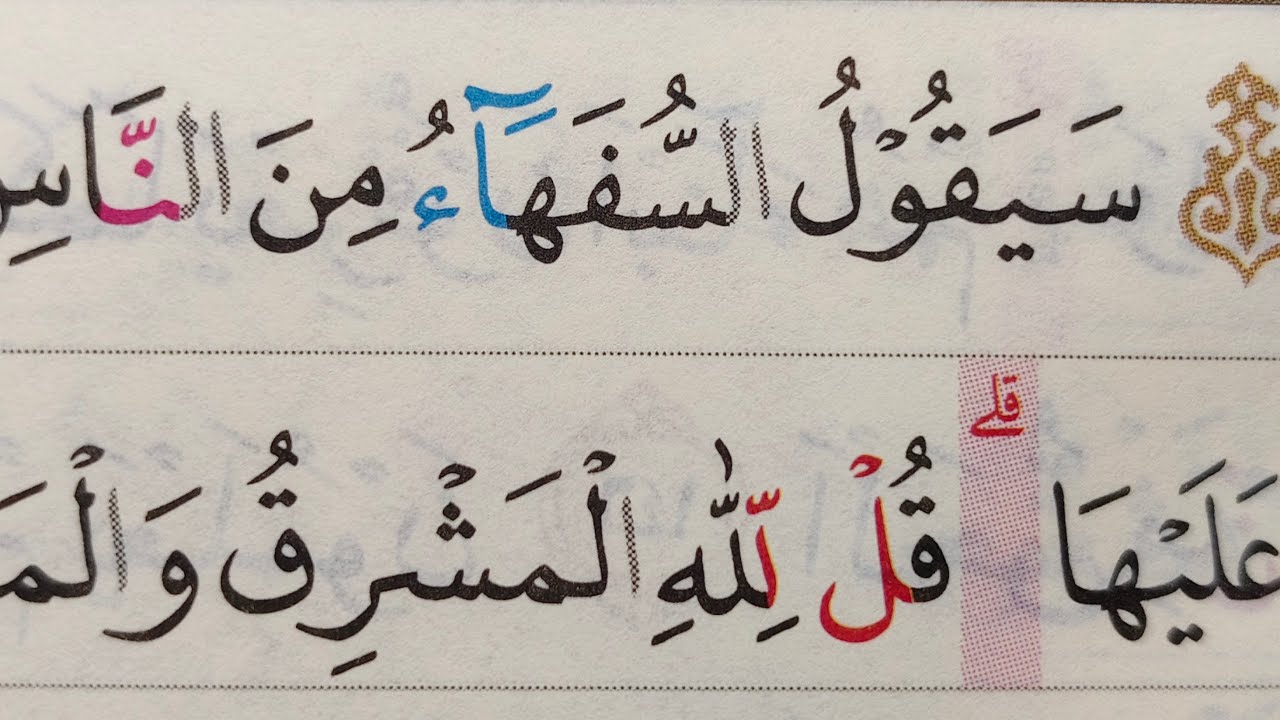 سَيَقُوْلُ السُّفَهَآءُ مِنَ النَّاسِ
عَلَيْهَا ۗ قُلْ لِّلّٰهِ الْمَشْرِقُ وَالْمَ